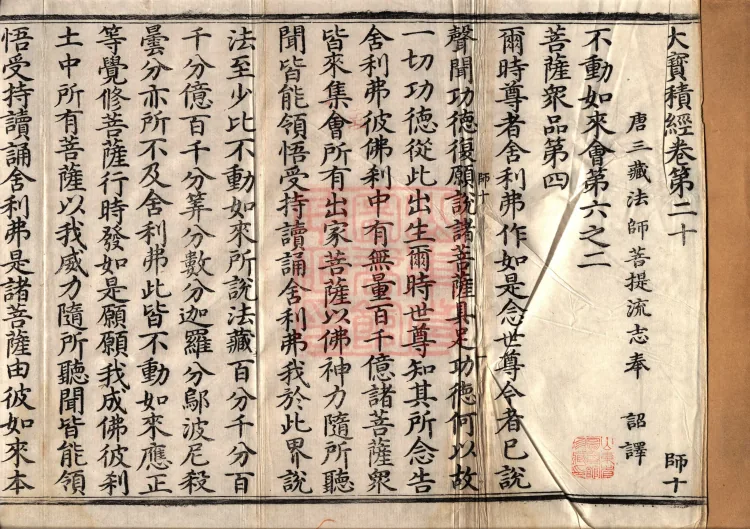 大寶積經卷第二十
師十
唐三藏法師菩提流志奉　詔譯
不動如來會第六之二
菩薩眾品第四
爾時尊者舍利弗作如是念世尊今者已說
師十
聲聞功德復願說諸菩薩具足功德何以故
一切功德從此出生爾時世尊知其所念告
舍利弗彼佛刹中有無量百千億諸菩薩眾
皆來集會所有出家菩薩以佛神力隨所聽
聞皆能領悟受持讀誦舍利弗我於此界說
法至少比不動如來所說法藏百分千分百
千分億百千分筭分數分迦羅分鄔波尼殺
曇分亦所不及舍利弗此皆不動如來應正
等覺修菩薩行時發如是願願我成佛彼刹
土中所有菩薩以我威力隨所聽聞皆能領
悟受持讀誦舍利弗是諸菩薩由彼如來本